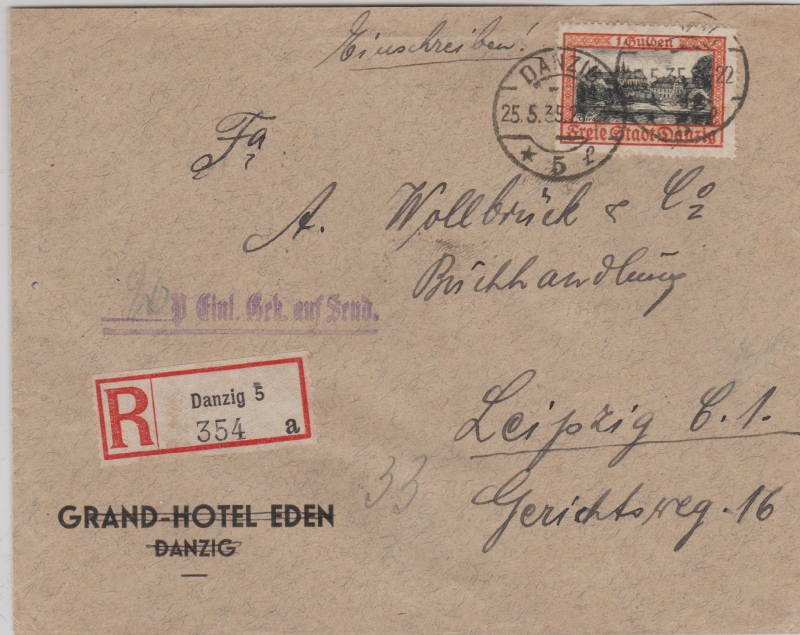 Einschreiben!
1 Gulden
Freie Stadt Danzig
DANZIG
25.5.35.
* 5 l
5.35
22
Fa
A. Wollbrück & Co
Buchhandlung
P Einl. Geb. auf Send.
R
Danzig 5
354 a
Leipzig C. 1.
33
Gerichtsweg. 16
GRAND-HOTEL EDEN
DANZIG